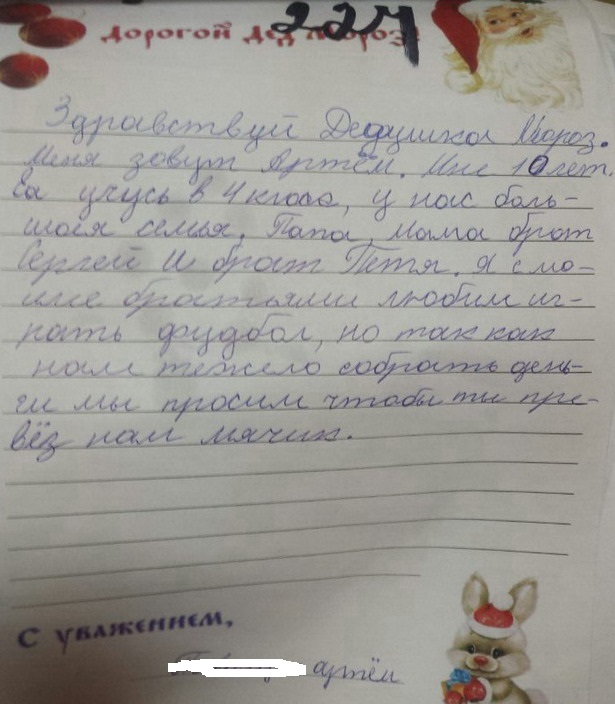 Дорогой Дед Мороз
224
Здравствуй Дедушка Мороз.
Меня зовут Артём. Мне 10 лет.
Я учусь в 4 класа, у нас боль-
шоея семья. Папа, мама брат
Сергей и брат Петя. Я с мо-
име братьями любим иг-
рать фоудбол, но так как
нам тежело собрать день-
ги мы просим чтобы ты пре-
вёз нам мячик.
С уважением,
артём